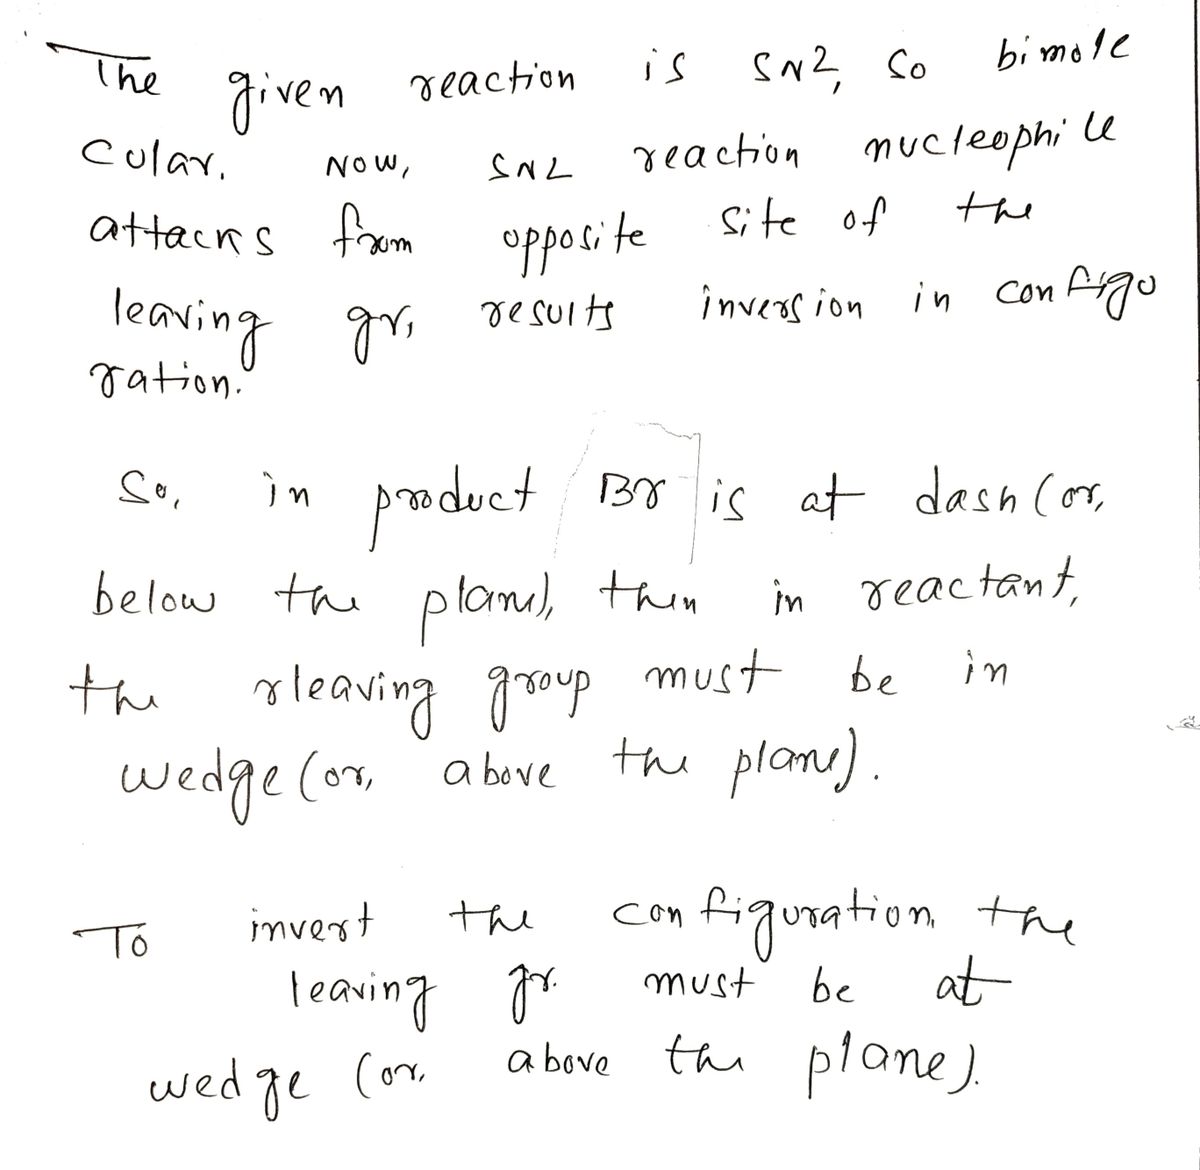 The given reaction is SN2, so bimole
cular. Now, SN2 reaction nucleophile
attacks from opposite site of the
leaving gr, results inversion in configu
ration.
So, in product Br is at dash (or,
below the plane), then in reactant,
the leaving group must be in
wedge (or, above the plane).
To invert the configuration, the
leaving gr. must be at
wedge (or, above the plane).